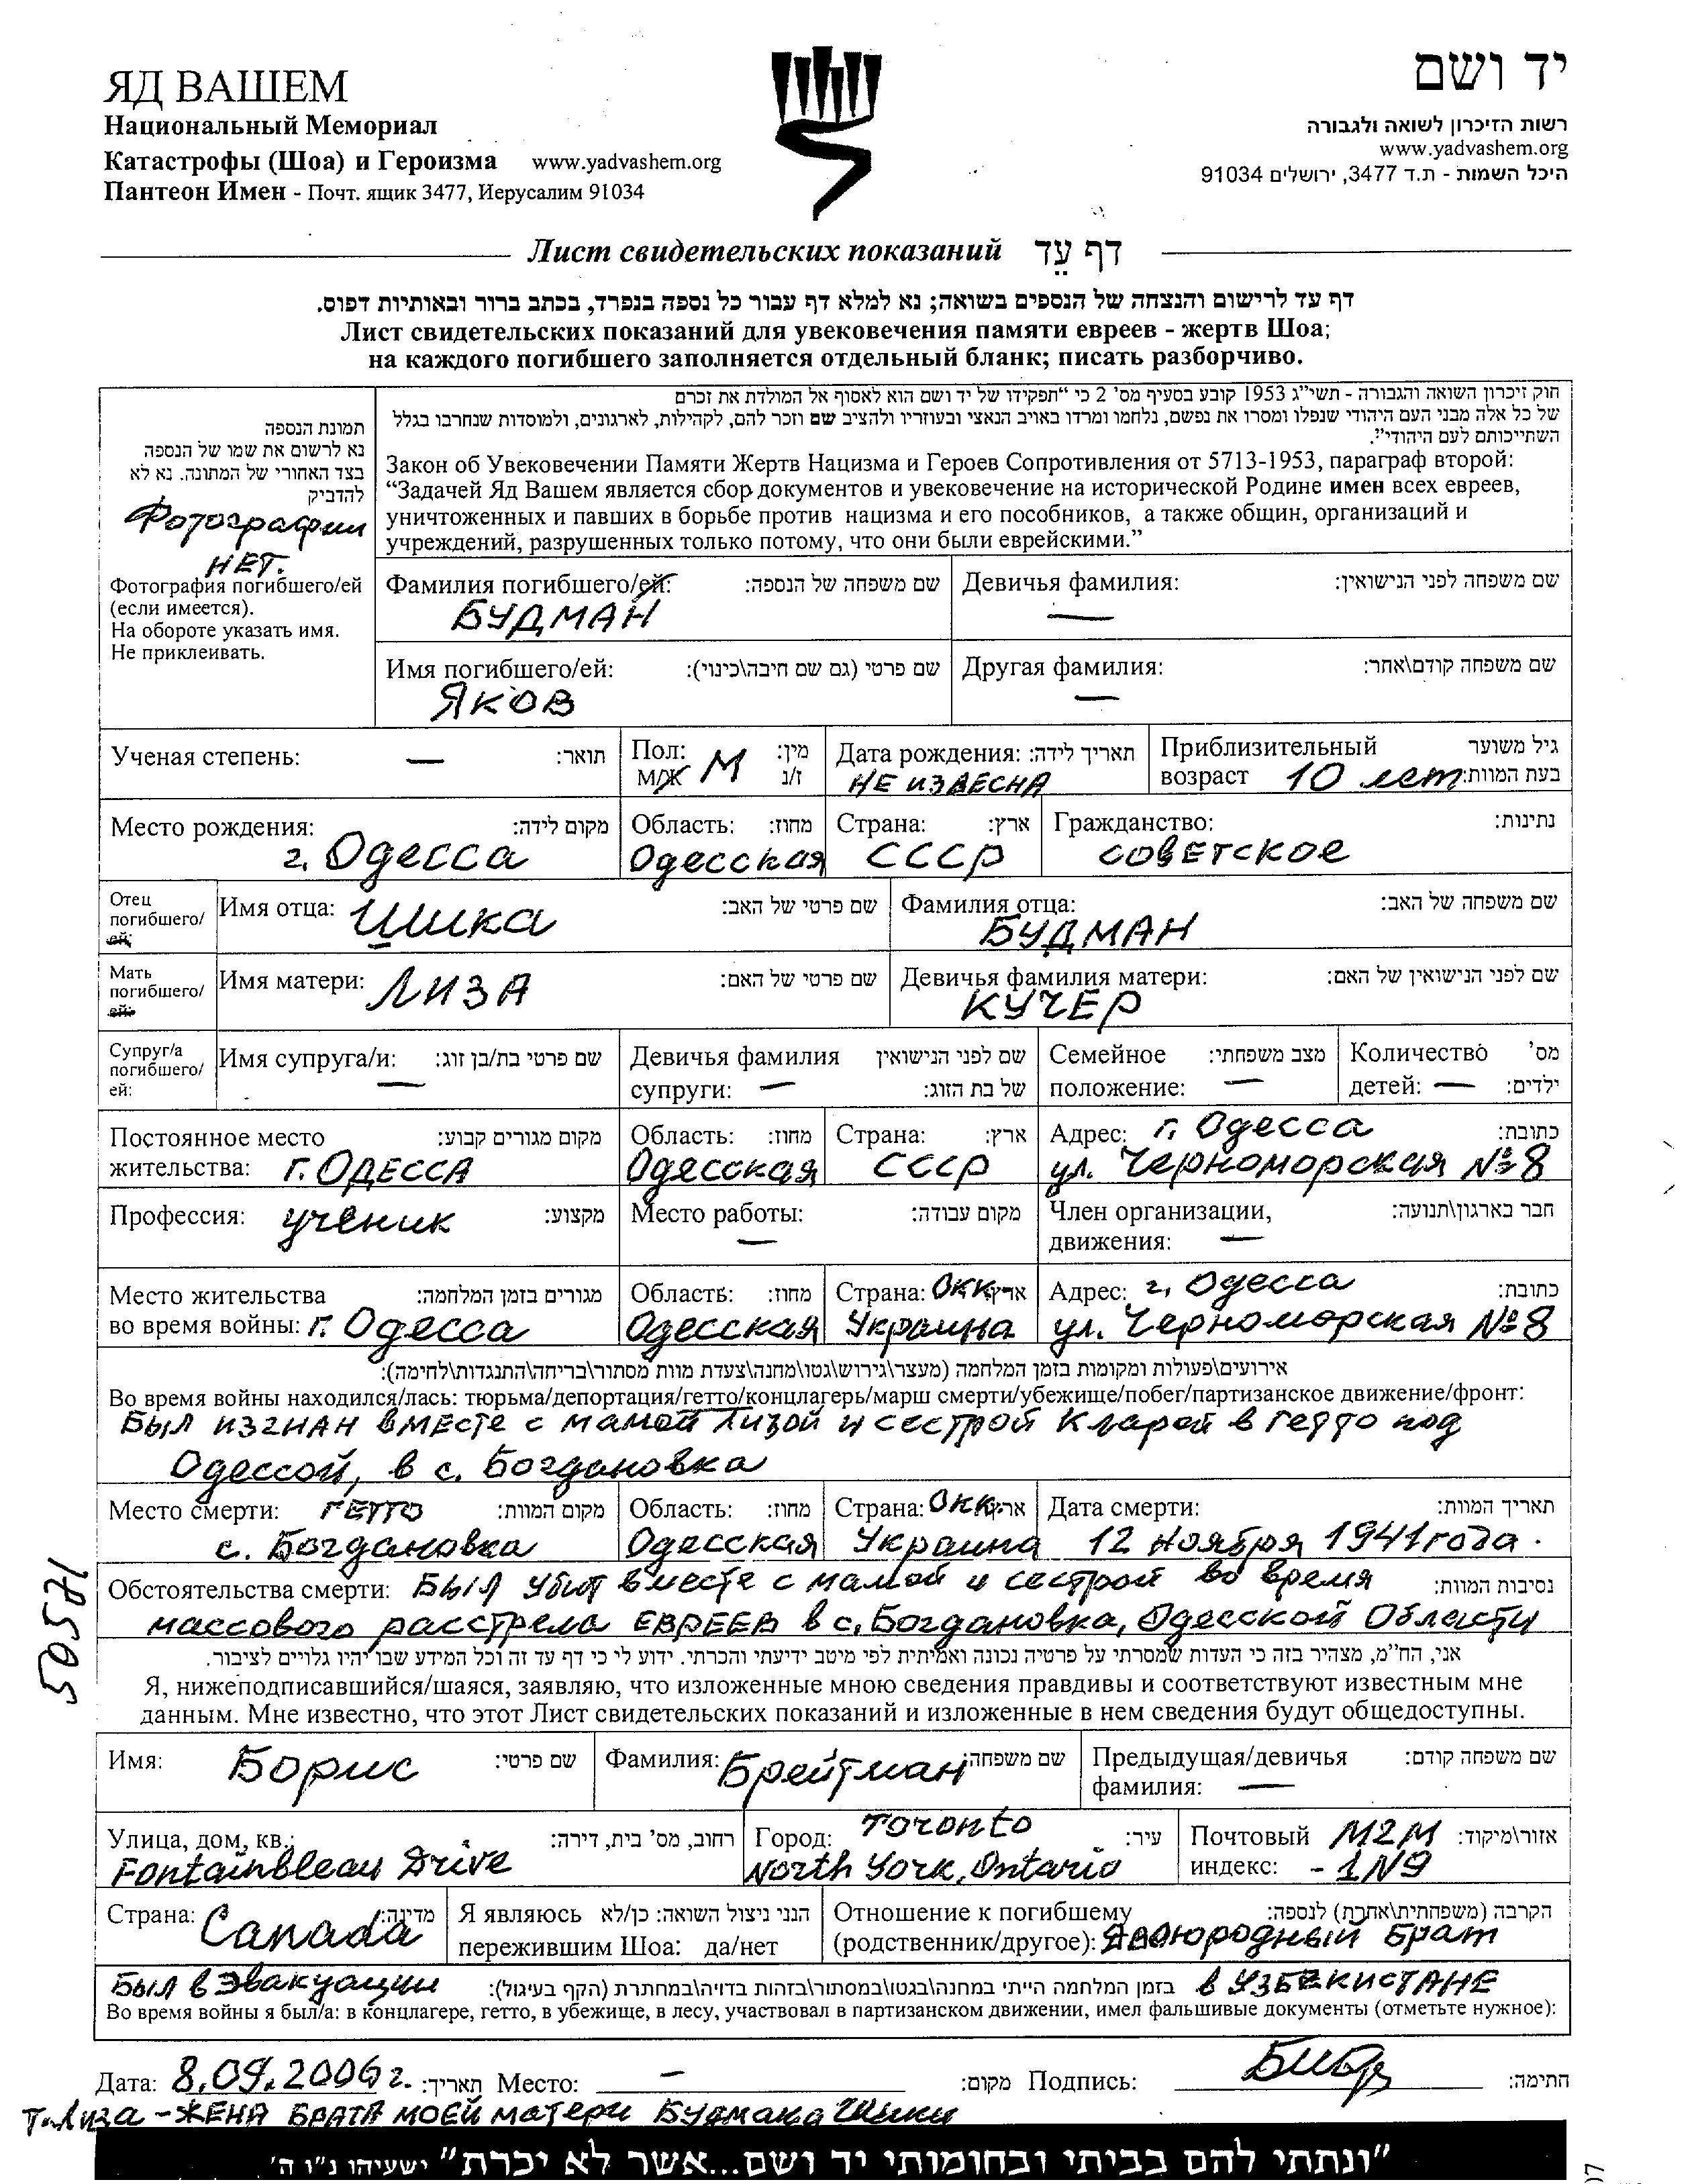 ЯД ВАШЕМ
Национальный Мемориал
Катастрофы (Шоа) и Героизма www.yadvashem.org
Пантеон Имен - Почт. ящик 3477, Иерусалим 91034
יד ושם
רשות הזיכרון לשואה ולגבורה
www.yadvashem.org
היכל השמות - ת.ד 3477, ירושלים 91034
Лист свидетельских показаний דף עֵד
דף עד לרישום והנצחה של הנספים בשואה; נא למלא דף עבור כל נספה בנפרד, בכתב ברור ובאותיות דפוס.
Лист свидетельских показаний для увековечения памяти евреев - жертв Шоа;
на каждого погибшего заполняется отдельный бланк; писать разборчиво.
תמונת הנספה
נא לרשום את שמו של הנספה
בצד האחורי של התמונה. נא לא
להדביק
Фотографии
НЕТ.
Фотография погибшего/ей
(если имеется).
На обороте указать имя.
Не приклеивать.
חוק זיכרון השואה והגבורה - תשי"ג 1953 קובע בסעיף מס' 2 כי "תפקידו של יד ושם הוא לאסוף אל המולדת את זכרם
של כל אלה מבני העם היהודי שנפלו ומסרו את נפשם, נלחמו ומרדו באויב הנאצי ובעוזריו ולהציב שם וזכר להם, לקהילות, לארגונים, ולמוסדות שנחרבו בגלל
השתייכותם לעם היהודי".
Закон об Увековечении Памяти Жертв Нацизма и Героев Сопротивления от 5713-1953, параграф второй:
“Задачей Яд Вашем является сбор документов и увековечение на исторической Родине имен всех евреев,
уничтоженных и павших в борьбе против нацизма и его пособников, а также общин, организаций и
учреждений, разрушенных только потому, что они были еврейскими.”
Фамилия погибшего/ей: שם משפחה של הנספה: Девичья фамилия: שם משפחה לפני הנישואין:
БУДМАН —
Имя погибшего/ей: שם פרטי (גם שם חיבה\כינוי): Другая фамилия: שם משפחה קודם\אחר:
ЯКОВ —
Ученая степень: — תואר: Пол: М/Ж М מין: ז/נ Дата рождения: תאריך לידה: НЕ ИЗВЕСНА Приблизительный возраст 10 лет גיל משוער בעת המוות:
Место рождения: מקום לידה: Область: מחוז: Страна: ארץ: Гражданство: נתינות:
г. Одесса Одесская СССР СОВЕТСКОЕ
Отец погибшего/ей: Имя отца: Шика שם פרטי של האב: Фамилия отца: БУДМАН שם משפחה של האב:
Мать погибшего/ей: Имя матери: ЛИЗА שם פרטי של האם: Девичья фамилия матери: КУЧЕР שם לפני הנישואין של האם:
Супруг/а погибшего/ей: Имя супруга/и: — שם פרטי בת/בן זוג: Девичья фамилия супруги: — שם לפני הנישואין של בת הזוג: Семейное положение: — מצב משפחתי: Количество детей: — מס' ילדים:
Постоянное место жительства: г. ОДЕССА מקום מגורים קבוע: Область: מחוז: Одесская Страна: ארץ: СССР Адрес: г. Одесса כתובת:
ул. Черноморская №8
Профессия: ученик מקצוע: Место работы: — מקום עבודה: Член организации, движения: — חבר בארגון\תנועה:
Место жительства во время войны: г. Одесса מגורים בזמן המלחמה: Область: מחוז: Одесская Страна: Окк. ארץ: Украина Адрес: г. Одесса כתובת:
ул. Черноморская №8
אירועים\פעולות ומקומות בזמן המלחמה (מעצר\גירוש\גטו\מחנה\צעדת מוות מסתור\בריחה\התנגדות\לחימה):
Во время войны находился/лась: тюрьма/депортация/гетто/концлагерь/марш смерти/убежище/побег/партизанское движение/фронт:
БЫЛ ИЗГНАН ВМЕСТЕ С МАМОЙ Лизой и сестрой Кларой в гетто под
Одессой, в с. Богдановка
Место смерти: ГЕТТО מקום המוות: Область: מחוז: Страна: Окк. ארץ: Дата смерти: תאריך המוות:
с. Богдановка Одесская Украина 12 ноября 1941 года.
Обстоятельства смерти: БЫЛ убит вместе с мамой и сестрой во время נסיבות המוות:
массового расстрела ЕВРЕЕВ в с. Богдановка, Одесской Области
אני, הח"מ, מצהיר בזה כי העדות שמסרתי על פרטיה נכונה ואמיתית לפי מיטב ידיעתי והכרתי. ידוע לי כי דף עד זה וכל המידע שבו יהיו גלויים לציבור.
Я, нижеподписавшийся/шаяся, заявляю, что изложенные мною сведения правдивы и соответствуют известным мне
данным. Мне известно, что этот Лист свидетельских показаний и изложенные в нем сведения будут общедоступны.
Имя: Борис שם פרטי: Фамилия: Брейтман שם משפחה: Предыдущая/девичья фамилия: — שם משפחה קודם:
Улица, дом, кв.: רחוב, מס' בית, דירה: Город: Toronto עיר: Почтовый индекс: M2M אזור\מיקוד:
Fontainbleau Drive North York, Ontario - 1N9
Страна: Canada מדינה: Я являюсь пережившим Шоа: да/нет הנני ניצול השואה: כן/לא Отношение к погибшему (родственник/другое): הקרבה (משפחתית\אחרת) לנספה: Двоюродный брат
Был в Эвакуации בזמן המלחמה הייתי במחנה\בגטו\במסתור\בזהות בדויה\במחתרת (הקף בעיגול): в УЗБЕКИСТАНЕ
Во время войны я был/а: в концлагере, гетто, в убежище, в лесу, участвовал в партизанском движении, имел фальшивые документы (отметьте нужное):
Дата: 8.09.2006 г. תאריך: Место: — מקום: Подпись: חתימה:
Т. Лиза - ЖЕНА БРАТА МОЕЙ матери Будмана Шики
"ונתתי להם בביתי ובחומותי יד ושם...אשר לא יכרת" ישעיהו נ"ו ה'